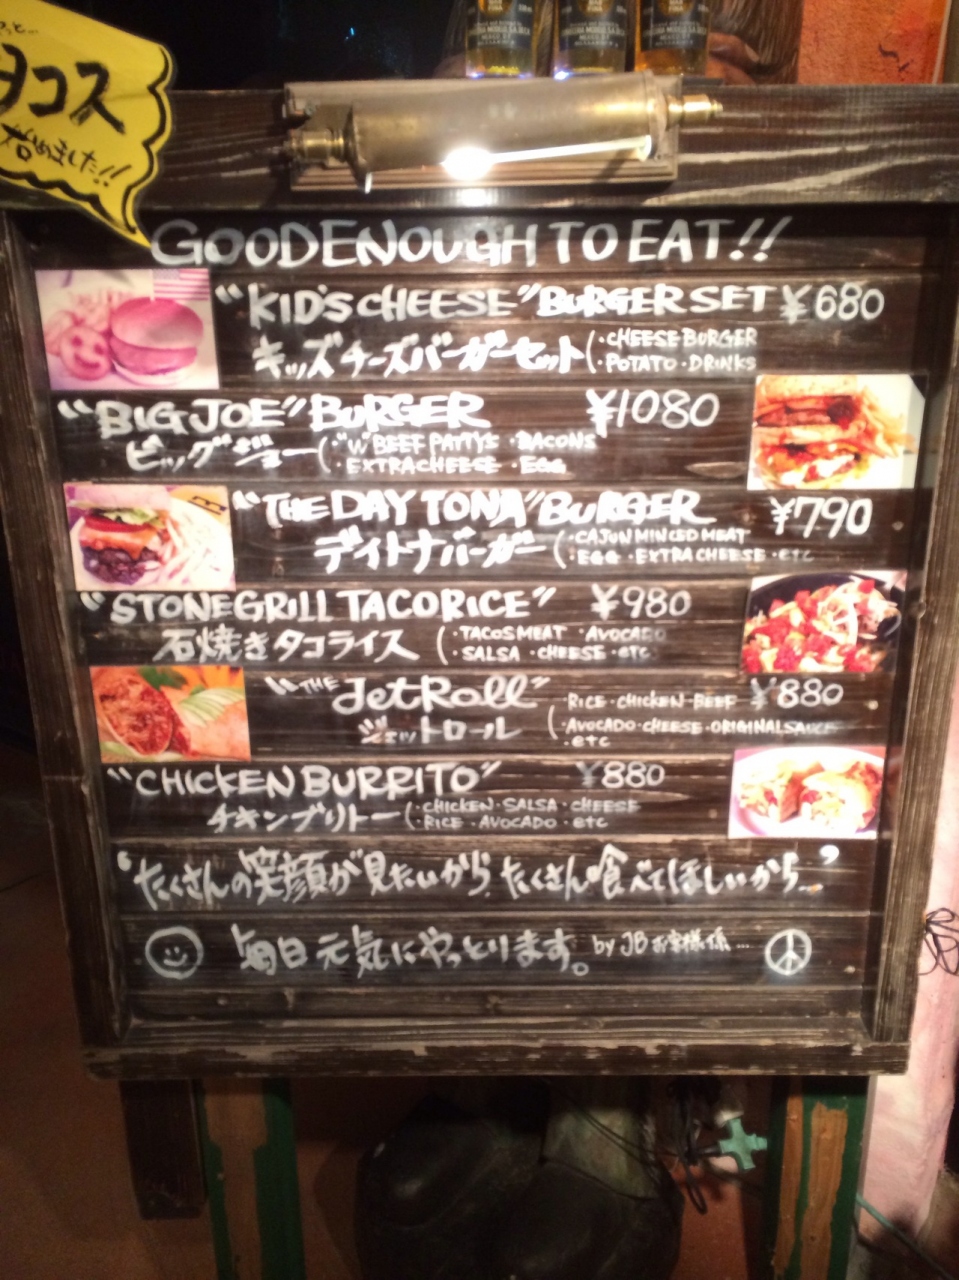 タコス
始めました!!
GOOD ENOUGH TO EAT!!
"KID'S CHEESE" BURGER SET ¥680
キッズチーズバーガーセット (・CHEESE BURGER
・POTATO ・DRINKS
"BIG JOE" BURGER ¥1080
ビッグジョー (・"W" BEEF PATTYS ・BACONS
・EXTRA CHEESE ・EGG
"THE DAY TONA" BURGER ¥790
デイトナバーガー (・CAJUN MINCED MEAT
・EGG ・EXTRA CHEESE ・etc
"STONE GRILL TACORICE" ¥980
石焼きタコライス (・TACOS MEAT ・AVOCADO
・SALSA ・CHEESE ・etc
"THE JetRoll" ¥880
ジェットロール (・RICE ・CHICKEN ・BEEF
・AVOCADO ・CHEESE ・ORIGINAL SAUCE
・etc
"CHICKEN BURRITO" ¥880
チキンブリトー (・CHICKEN ・SALSA ・CHEESE
・RICE ・AVOCADO ・etc
"たくさんの笑顔が見たいから、たくさん喰べてほしいから…"
毎日元気にやっとります。by JBお客様係…